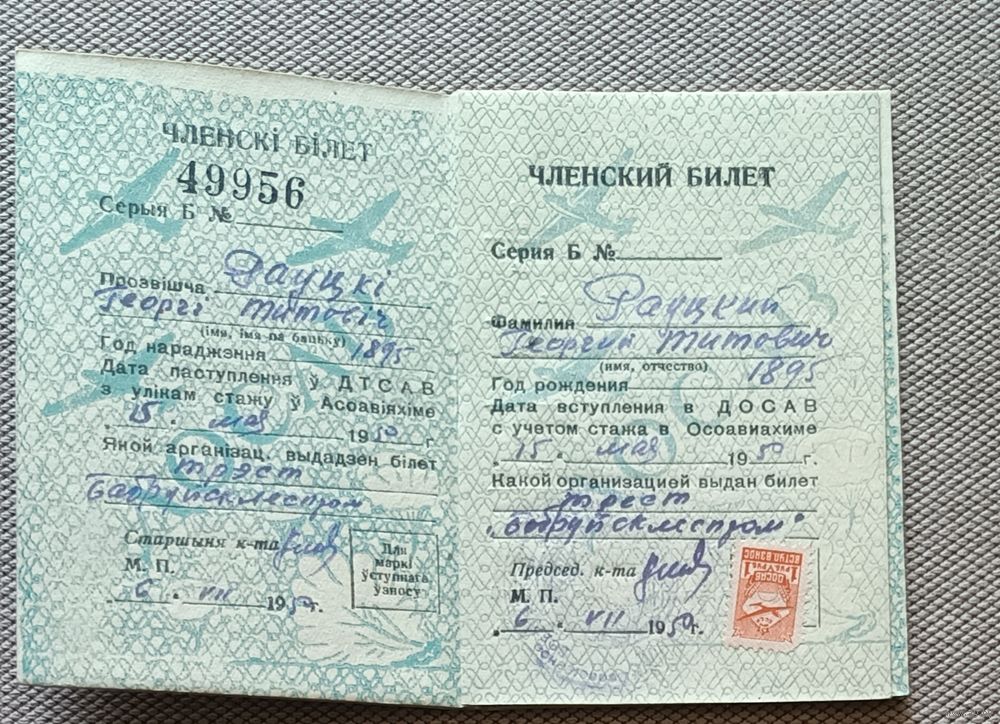 ЧЛЕНСКІ БІЛЕТ
49956
Серыя Б №
Прозвішча Рауцкі
Георгі Титовіч
(імя, імя па бацьку)
Год нараджэння 1895
Дата паступлення ў ДТСАВ
з улікам стажу ў Асоавіяхіме
„15“ мая 1950 г.
Якой арганізац. выдадзен білет
трэст
Бабруйсклеспром
Старшыня к-та
М. П.
6 VII 1950 г.
Для
маркі
ўступнага
ўзносу
ЧЛЕНСКИЙ БИЛЕТ
Серия Б №
Фамилия Рауцкий
Георгий Титович
(имя, отчество)
Год рождения 1895
Дата вступления в ДОСАВ
с учетом стажа в Осоавиахиме
„15“ мая 1950 г.
Какой организацией выдан билет
трест
„Бобруйсклеспром“
Председ. к-та
М. П.
„6“ VII 1950 г.
ДОСАВ
1 РУБ 1
ВСТУП. ВЗНОС